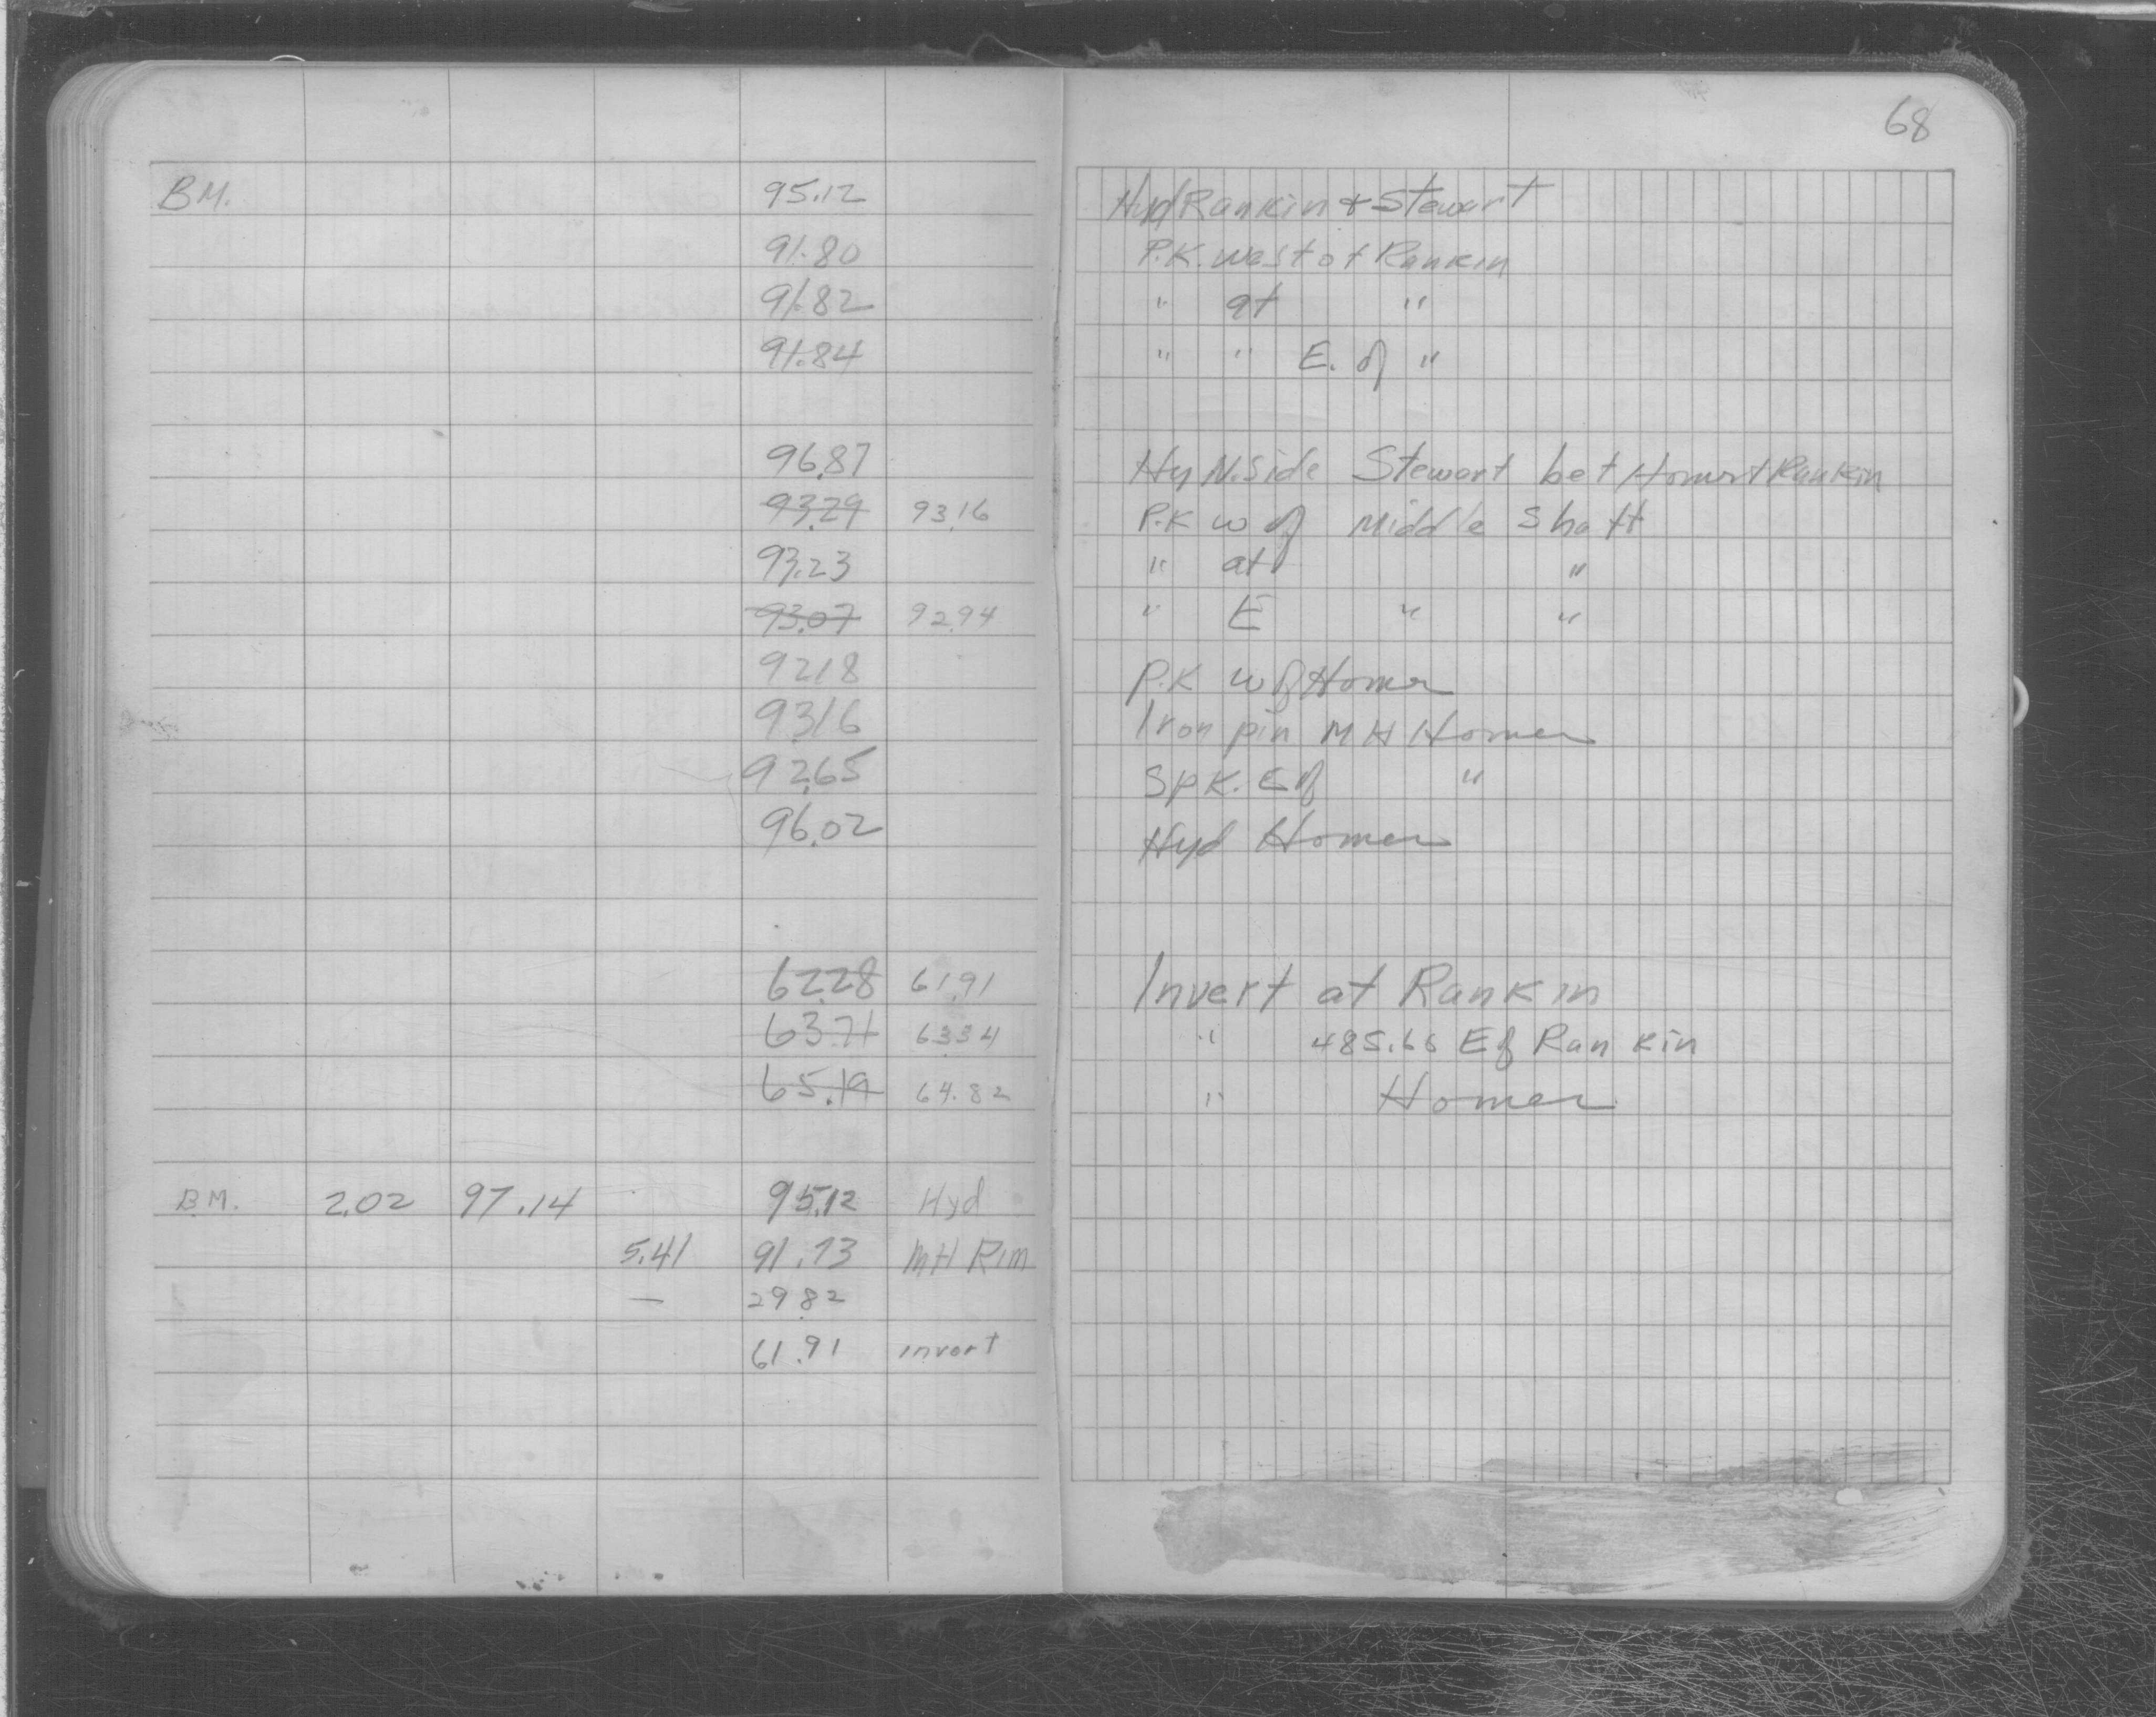 68
BM. 95.12 Hyd Rankin & Stewart
91.80 P.K. west of Rankin
91.82 " at "
91.84 " " E. of "
96.87 Hy N. Side Stewart bet Homer & Rankin
93.29 93.16 P.K w of Middle Shaft
93.23 " at "
93.07 92.94 " E " "
92.18 P.K w of Homer
93.16 Iron pin MH Homer
92.65 Spk. E of "
96.02 Hyd Homer
62.28 61.91 Invert at Rankin
63.71 63.34 " 485.66 E of Rankin
65.19 64.82 " Homer
BM. 2.02 97.14 95.12 Hyd
5.41 91.73 MH Rim
— 29.82
61.91 invert